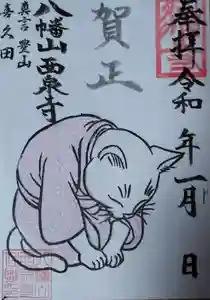 奉拝令和 年一月 日
賀正
八幡山西泉寺
真言豊山
喜久田